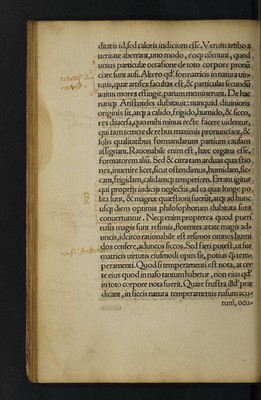 ditatis id, sed caloris indicium esse. Verum ambo a
ueritate aberrant, uno modo, eo q; domunt, quod
unius particulæ occasione de toto corpore pronũ
ciare sunt ausi. Altero q; formatricis in natura uir-
tutis, quæ artifex facultas est, & particulas secundũ
animi mores effingit, parum meminerunt. De hac
nanq; Aristoteles dubitauit: nunquid diuinioris
originis sit, atq; a calido, frigido, humido, & sicco,
res diuersa, quo mihi minus recte facere uidentur,
qui tam temere de rebus maximis pronunciant, &
solis qualitatibus formandarum partium causam
assignant. Rationabile enim est, hæc organa esse,
formatorem aliũ. Sed & citra tam arduas quæstio
nes, inuenire licet, sicut ostendimus, humidam, sic-
cam, frigidam, calidamq; temperiem. Errant igitur
qui proprijs indicijs neglectis, ad ea quæ longe po
sita sunt, & magnæ quæstioni fuerũt, atq; ad hunc
usq; diem optimis philosophorum dubitata sunt
conuertuntur. Neq; enim propterea quod pueri
rasis magis sunt resimis, florentes ætate magis ad-
uncis, idcirco rationabile est resimos omnes humi
dos censere, aduncos siccos. Sed fieri potest, ut for
matricis uirtutis eiusmodi opus sit, potius q̃ tem-
peramenti. Quod si temperamenti est nota, at cer
te eius quod in naso tantum habetur, non eius qđ
in toto corpore nota fuerit. Quare frustra illđ præ
dicant, in siccis natura temperamentis nasum acu-
tum, ocu-